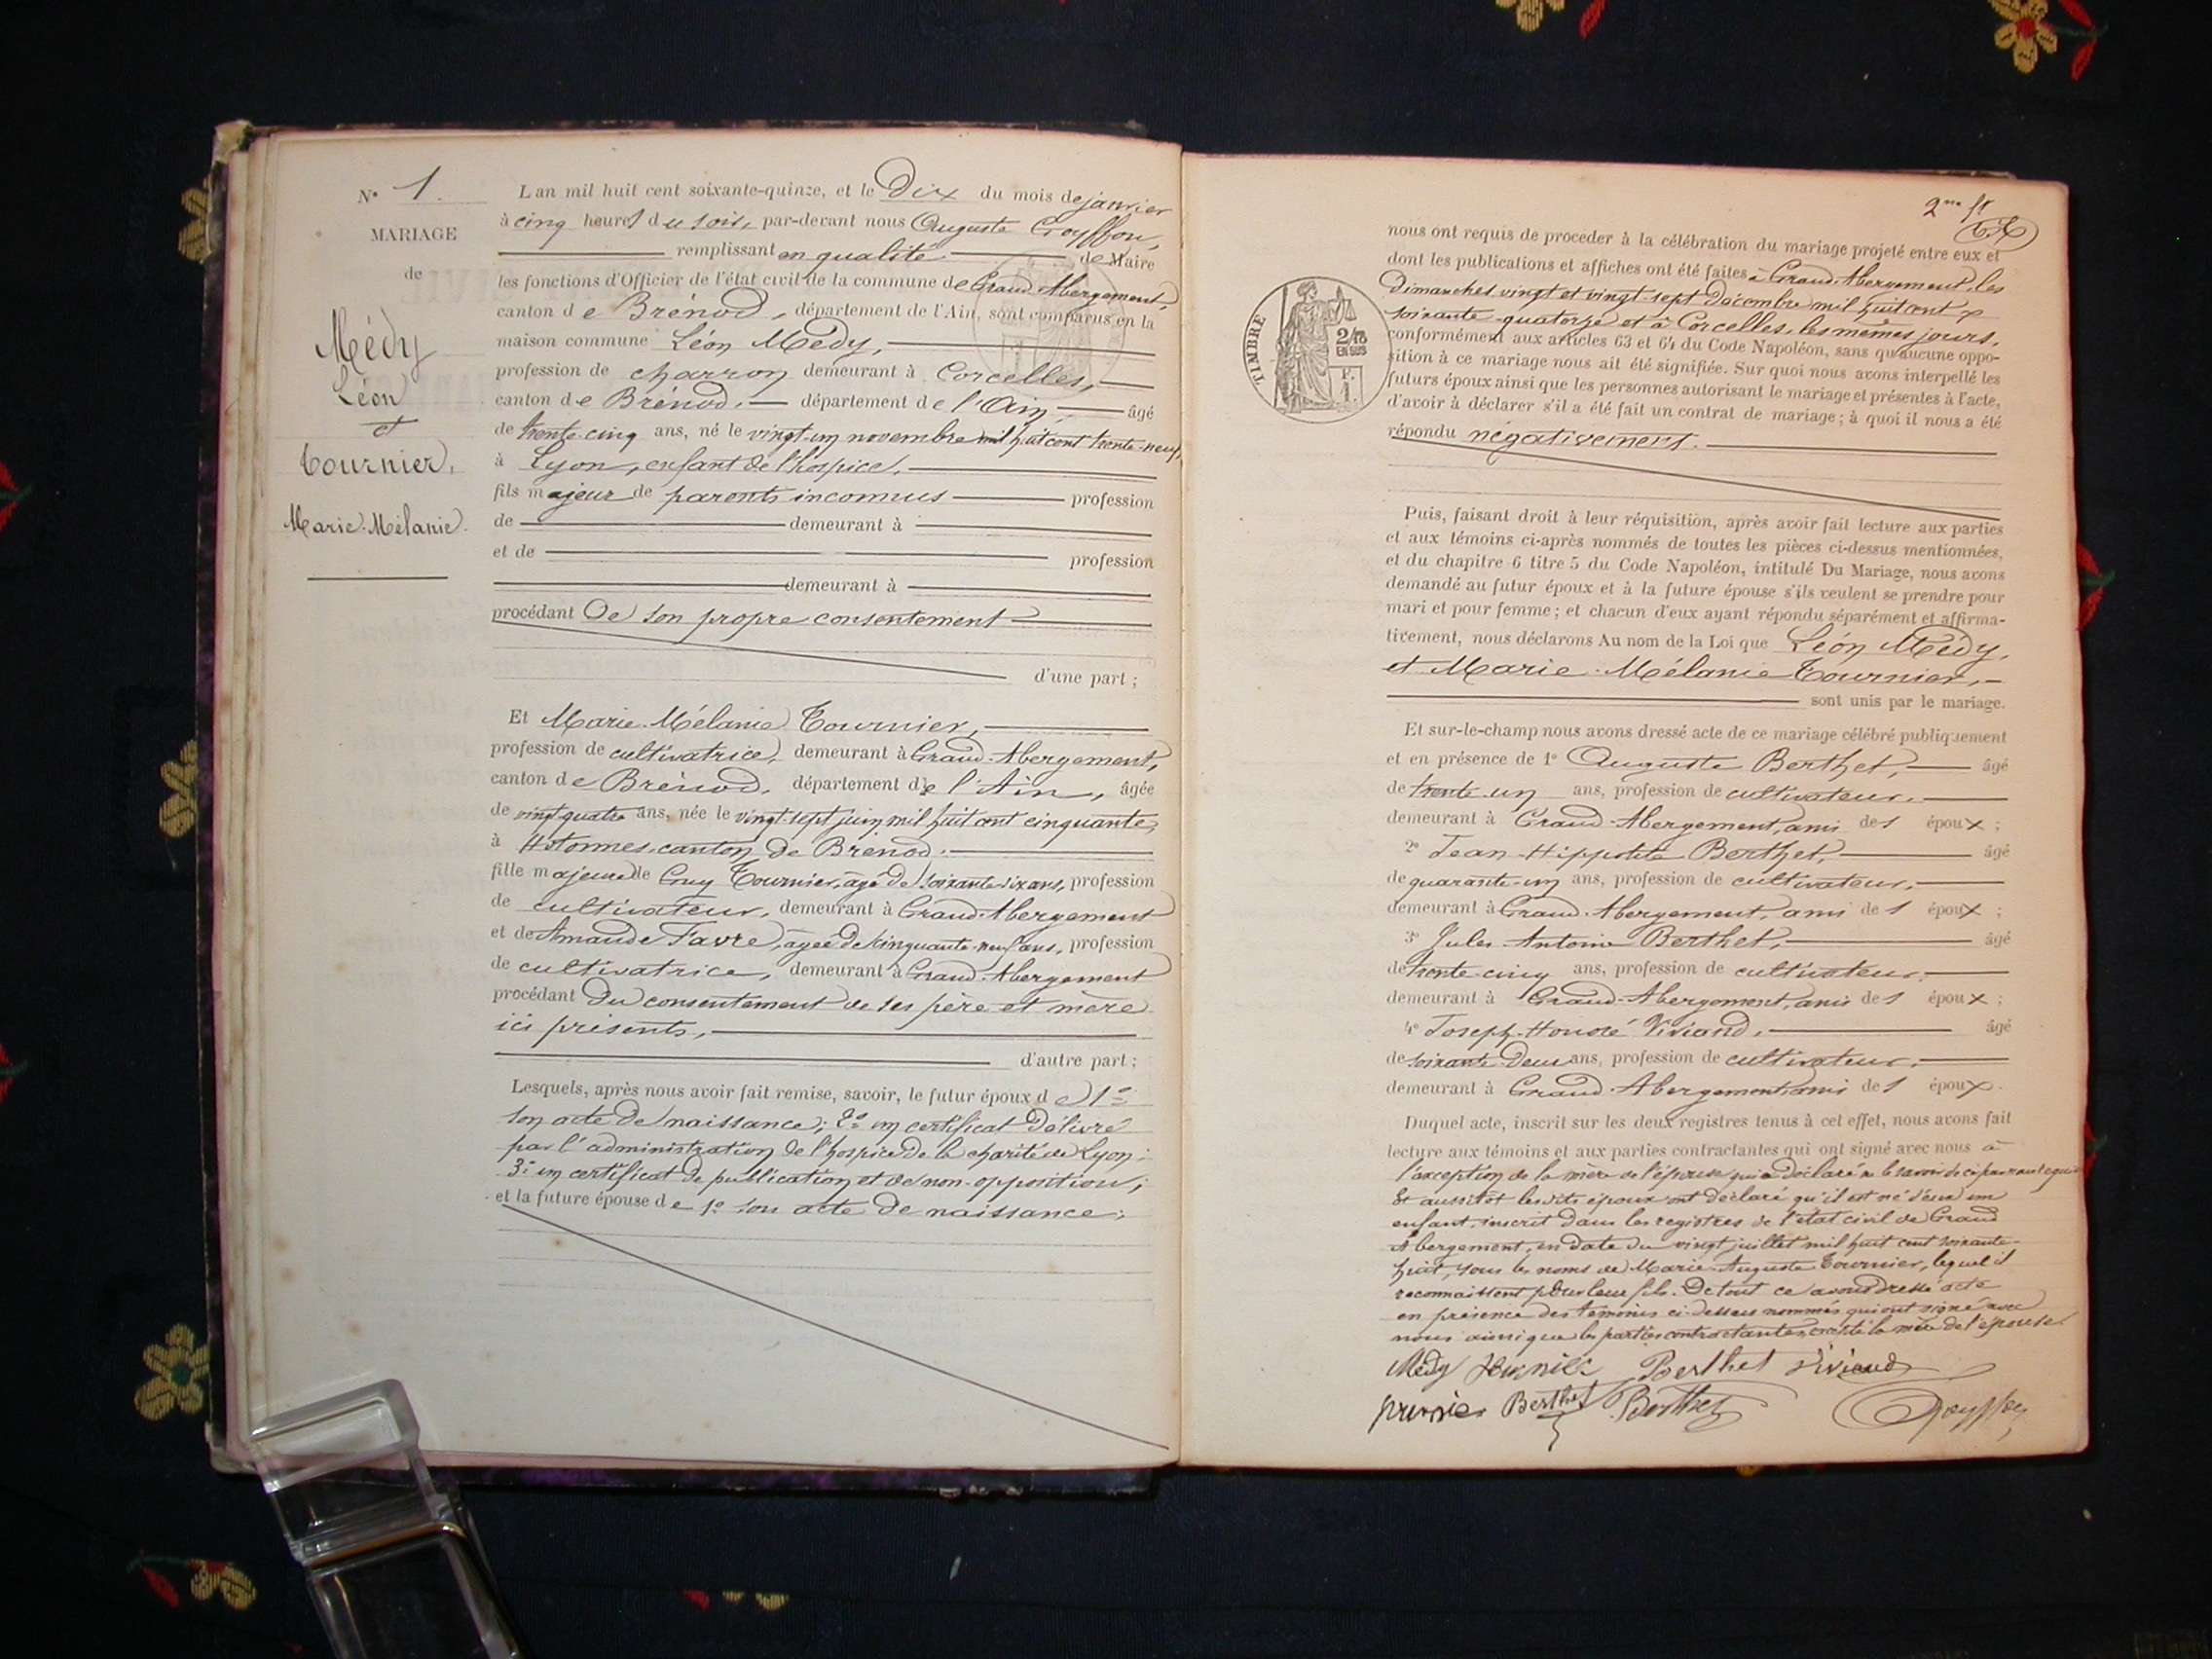 N° 1.
MARIAGE
de
Médy
Léon
et
Tournier,
Marie-Mélanie.
L'an mil huit cent soixante-quinze, et le Dix du mois de janvier
à cinq heures du soir, par-devant nous Auguste
remplissant en qualité de Maire
les fonctions d'Officier de l'état civil de la commune de Grand-Abergement,
canton de Brénod, département de l'Ain, sont comparus en la
maison commune Léon Médy,
profession de charron demeurant à Corcelles,
canton de Brénod, département de l'Ain, âgé
de trente-cinq ans, né le vingt-un novembre mil huit cent trente-neuf,
à Lyon, enfant de l'hospice,
fils majeur de parents inconnus profession
de demeurant à
et de profession
demeurant à
procédant De son propre consentement
d'une part ;
Et Marie-Mélanie Tournier,
profession de cultivatrice, demeurant à Grand-Abergement,
canton de Brénod, département de l'Ain, âgée
de vingt-quatre ans, née le vingt-sept juin mil huit cent cinquante,
à Hotonnes, canton de Brénod.
fille majeure de Guy Tournier, âgé de soixante-dix ans, profession
de cultivateur, demeurant à Grand-Abergement
et de Amande Favre, âgée de cinquante-neuf ans, profession
de cultivatrice, demeurant à Grand-Abergement
procédant Du consentement de ses père et mère
ici présents,
d'autre part ;
Lesquels, après nous avoir fait remise, savoir, le futur époux de 1°
son acte de naissance ; 2° un certificat délivré
par l'administration de l'hospice de la charité de Lyon ;
3° un certificat de publication et de non-opposition ;
et la future épouse de 1° son acte de naissance ;
2me ft
TIMBRE
2/10
EN SUS
nous ont requis de proceder à la célébration du mariage projeté entre eux et
dont les publications et affiches ont été faites à Grand-Abergement, les
Dimanches vingt et vingt-sept Décembre mil huit cent
soixante-quatorze et à Corcelles, les mêmes jours,
conformément aux articles 63 et 64 du Code Napoléon, sans qu'aucune oppo-
sition à ce mariage nous ait été signifiée. Sur quoi nous avons interpellé les
futurs époux ainsi que les personnes autorisant le mariage et présentes à l'acte,
d'avoir à déclarer s'il a été fait un contrat de mariage ; à quoi il nous a été
répondu négativement.
Puis, faisant droit à leur réquisition, après avoir fait lecture aux parties
et aux témoins ci-après nommés de toutes les pièces ci-dessus mentionnées,
et du chapitre 6 titre 5 du Code Napoléon, intitulé Du Mariage, nous avons
demandé au futur époux et à la future épouse s'ils veulent se prendre pour
mari et pour femme ; et chacun d'eux ayant répondu séparément et affirma-
tivement, nous déclarons Au nom de la Loi que Léon Médy,
et Marie-Mélanie Tournier,
sont unis par le mariage.
Et sur-le-champ nous avons dressé acte de ce mariage célébré publiquement
et en présence de 1° Auguste Berthet, âgé
de trente-un ans, profession de cultivateur,
demeurant à Grand-Abergement, ami des époux ;
2° Jean-Hippolite Berthet, âgé
de quarante-un ans, profession de cultivateur,
demeurant à Grand-Abergement, ami des époux ;
3° Jules-Antoine Berthet, âgé
de trente-cinq ans, profession de cultivateur,
demeurant à Grand-Abergement, ami des époux ;
4° Joseph-Honoré Viviand, âgé
de soixante-deux ans, profession de cultivateur,
demeurant à Grand-Abergement, ami des époux.
Duquel acte, inscrit sur les deux registres tenus à cet effet, nous avons fait
lecture aux témoins et aux parties contractantes qui ont signé avec nous à
l'exception de la mère de l'épouse qui a déclaré ne le savoir de ce par nous requis
Et aussitôt lesdits époux ont déclaré qu'il est né d'eux un
enfant, inscrit dans les registres de l'état civil de Grand
Abergement, en date du vingt juillet mil huit cent soixante-
huit, sous les noms de Marie-Auguste Tournier, lequel il
reconnaissent pour leur fils. De tout ce avons dressé acte
en présence des témoins ci-dessus nommés qui ont signé avec
nous ainsi que les parties contractantes, excepté la mère de l'épouse.
Médy Tournier Berthet Viviand
Berthet Berthet